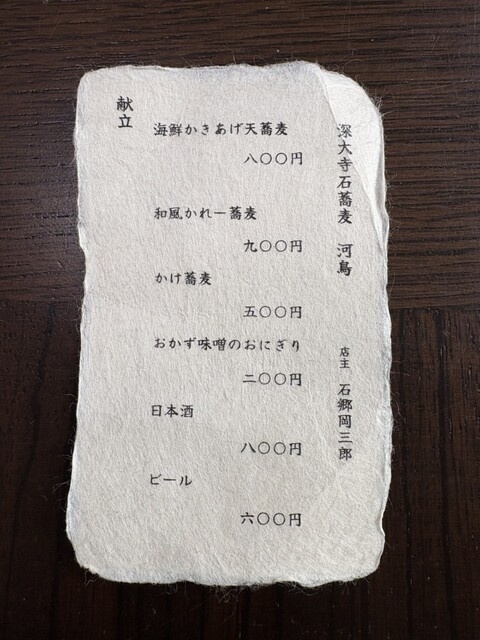 深大寺石蕎麦 河鳥
店主 石郷岡三郎
献立
海鮮かきあげ天蕎麦
八〇〇円
和風かれー蕎麦
九〇〇円
かけ蕎麦
五〇〇円
おかず味噌のおにぎり
二〇〇円
日本酒
八〇〇円
ビール
六〇〇円